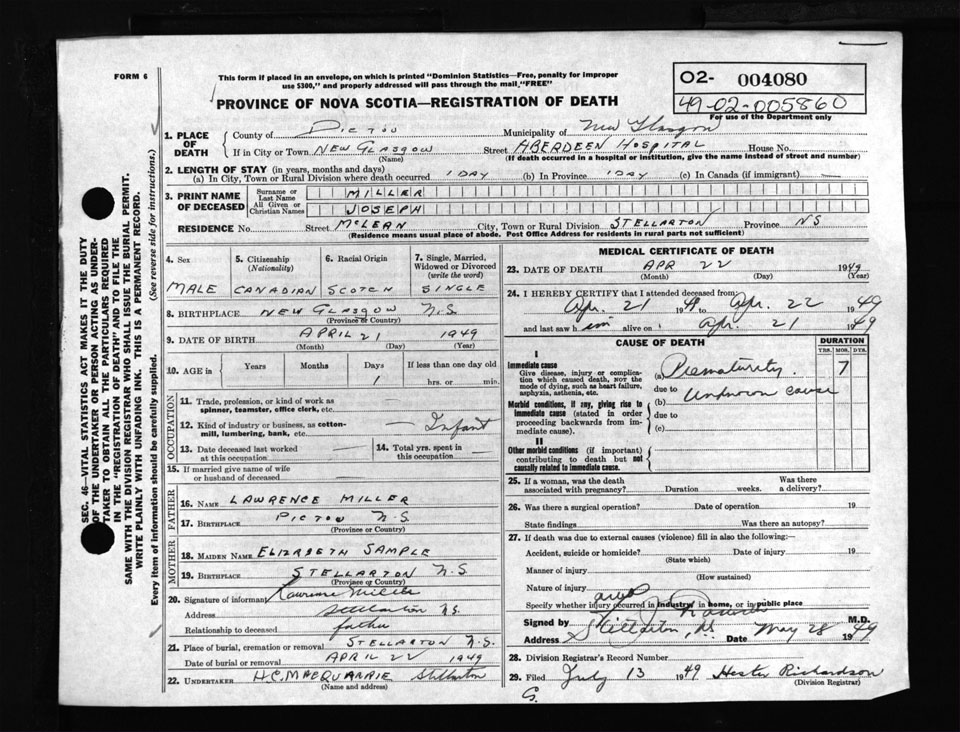 FORM 6
This form if placed in an envelope, on which is printed "Dominion Statistics—Free, penalty for improper
use $300," and properly addressed will pass through the mail "FREE"
O2- 004080
49-02-005860
For use of the Department only
PROVINCE OF NOVA SCOTIA—REGISTRATION OF DEATH
1. PLACE OF DEATH
County of PICTOU Municipality of New Glasgow
If in City or Town NEW GLASGOW Street ABERDEEN HOSPITAL House No.
(Name) (If death occurred in a hospital or institution, give the name instead of street and number)
2. LENGTH OF STAY (in years, months and days)
(a) In City, Town or Rural Division where death occurred 1 DAY (b) In Province 1 DAY (c) In Canada (if immigrant) —
3. PRINT NAME OF DECEASED
Surname or Last Name MILLER
All Given or Christian Names JOSEPH
RESIDENCE No. Street McLEAN City, Town or Rural Division STELLARTON Province NS
(Residence means usual place of abode. Post Office Address for residents in rural parts not sufficient)
4. Sex 5. Citizenship (Nationality) 6. Racial Origin 7. Single, Married, Widowed or Divorced (write the word)
MALE CANADIAN SCOTCH SINGLE
8. BIRTHPLACE NEW GLASGOW N.S.
(Province or Country)
9. DATE OF BIRTH APRIL 21 1949
(Month) (Day) (Year)
10. AGE in Years Months Days If less than one day old
1 hrs. or min.
OCCUPATION
11. Trade, profession, or kind of work as
spinner, teamster, office clerk, etc.
12. Kind of industry or business, as cotton-
mill, lumbering, bank, etc. — Infant
13. Date deceased last worked
at this occupation —
14. Total yrs. spent in
this occupation —
15. If married give name of wife
or husband of deceased
FATHER
16. NAME LAWRENCE MILLER
17. BIRTHPLACE PICTOU N.S.
(Province or Country)
MOTHER
18. MAIDEN NAME ELIZABETH SAMPLE
19. BIRTHPLACE STELLARTON N.S
(Province or Country)
20. Signature of informant Lawrence Miller
Address Stellarton N.S.
Relationship to deceased father
21. Place of burial, cremation or removal STELLARTON N.S.
Date of burial or removal APRIL 22 1949
22. UNDERTAKER H.C. MACQUARRIE Stellarton
(Name and address)
MEDICAL CERTIFICATE OF DEATH
23. DATE OF DEATH APR 22 1949
(Month) (Day) (Year)
24. I HEREBY CERTIFY that I attended deceased from:
Apr. 21 1949 to Apr. 22 1949
and last saw him alive on Apr. 21 1949
CAUSE OF DEATH DURATION
YRS. MOS. DYS.
I
Immediate cause
Give disease, injury or complica-
tion which caused death, not the
mode of dying, such as heart failure,
asphyxia, asthenia, etc.
(a) Prematurity. 7
due to
(b) Unknown cause
Morbid conditions, if any, giving rise to
immediate cause (stated in order
proceeding backwards from im-
mediate cause).
due to
(c)
II
Other morbid conditions (if important)
contributing to death but not
causally related to immediate cause.
25. If a woman, was the death
associated with pregnancy? Duration weeks. Was there
a delivery?
26. Was there a surgical operation? Date of operation 19
State findings Was there an autopsy?
27. If death was due to external causes (violence) fill in also the following:—
Accident, suicide or homicide? Date of injury 19
(State which)
Manner of injury
(How sustained)
Nature of injury
Specify whether injury occurred in industry, in home, or in public place
Signed by M.D.
Address Stellarton, N.S. Date May 28 1949
28. Division Registrar's Record Number
29. Filed July 13 1949 Hester Richardson
(Division Registrar)
G.
SEC. 46—VITAL STATISTICS ACT MAKES IT THE DUTY
OF THE UNDERTAKER OR PERSON ACTING AS UNDER-
TAKER TO OBTAIN ALL THE PARTICULARS REQUIRED
IN THE "REGISTRATION OF DEATH" AND TO FILE THE
SAME WITH THE DIVISION REGISTRAR WHO SHALL ISSUE THE BURIAL PERMIT.
WRITE PLAINLY WITH UNFADING INK. THIS IS A PERMANENT RECORD.
Every item of information should be carefully supplied. (See reverse side for instructions.)